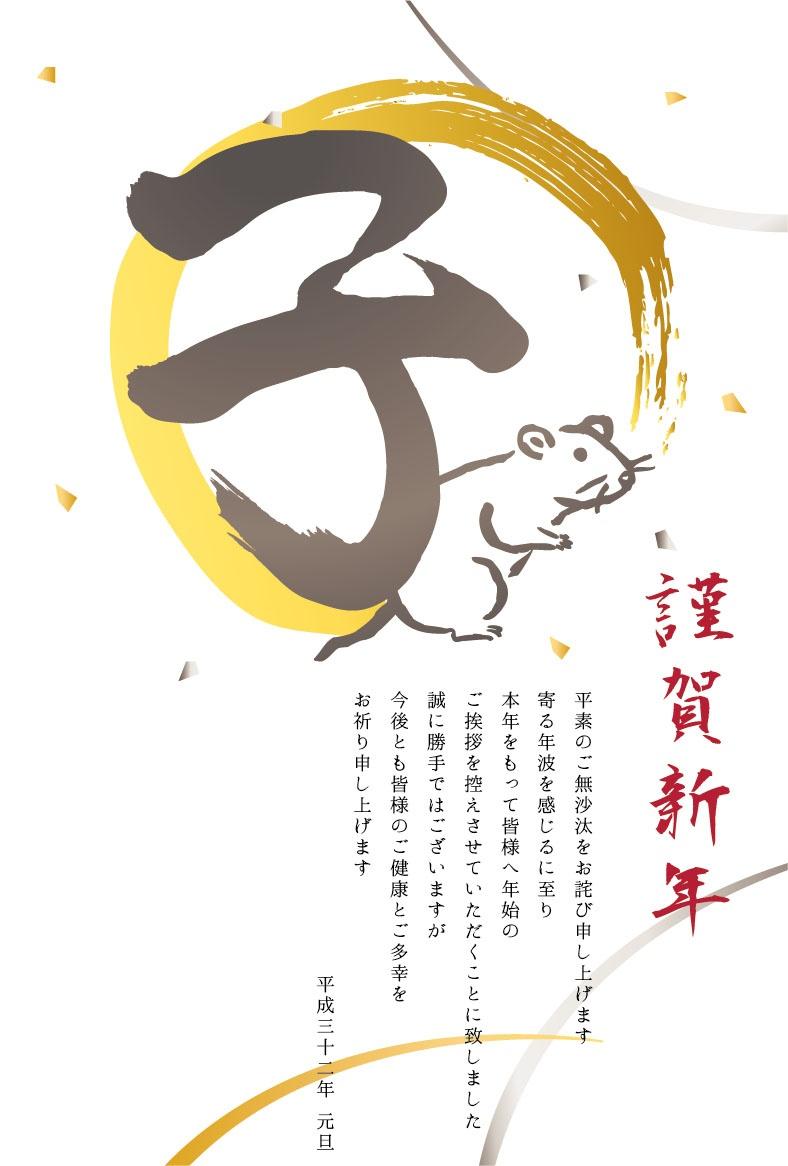 子
謹賀新年
平素のご無沙汰をお詫び申し上げます
寄る年波を感じるに至り
本年をもって皆様へ年始の
ご挨拶を控えさせていただくことに致しました
誠に勝手ではございますが
今後とも皆様のご健康とご多幸を
お祈り申し上げます
平成三十二年 元旦